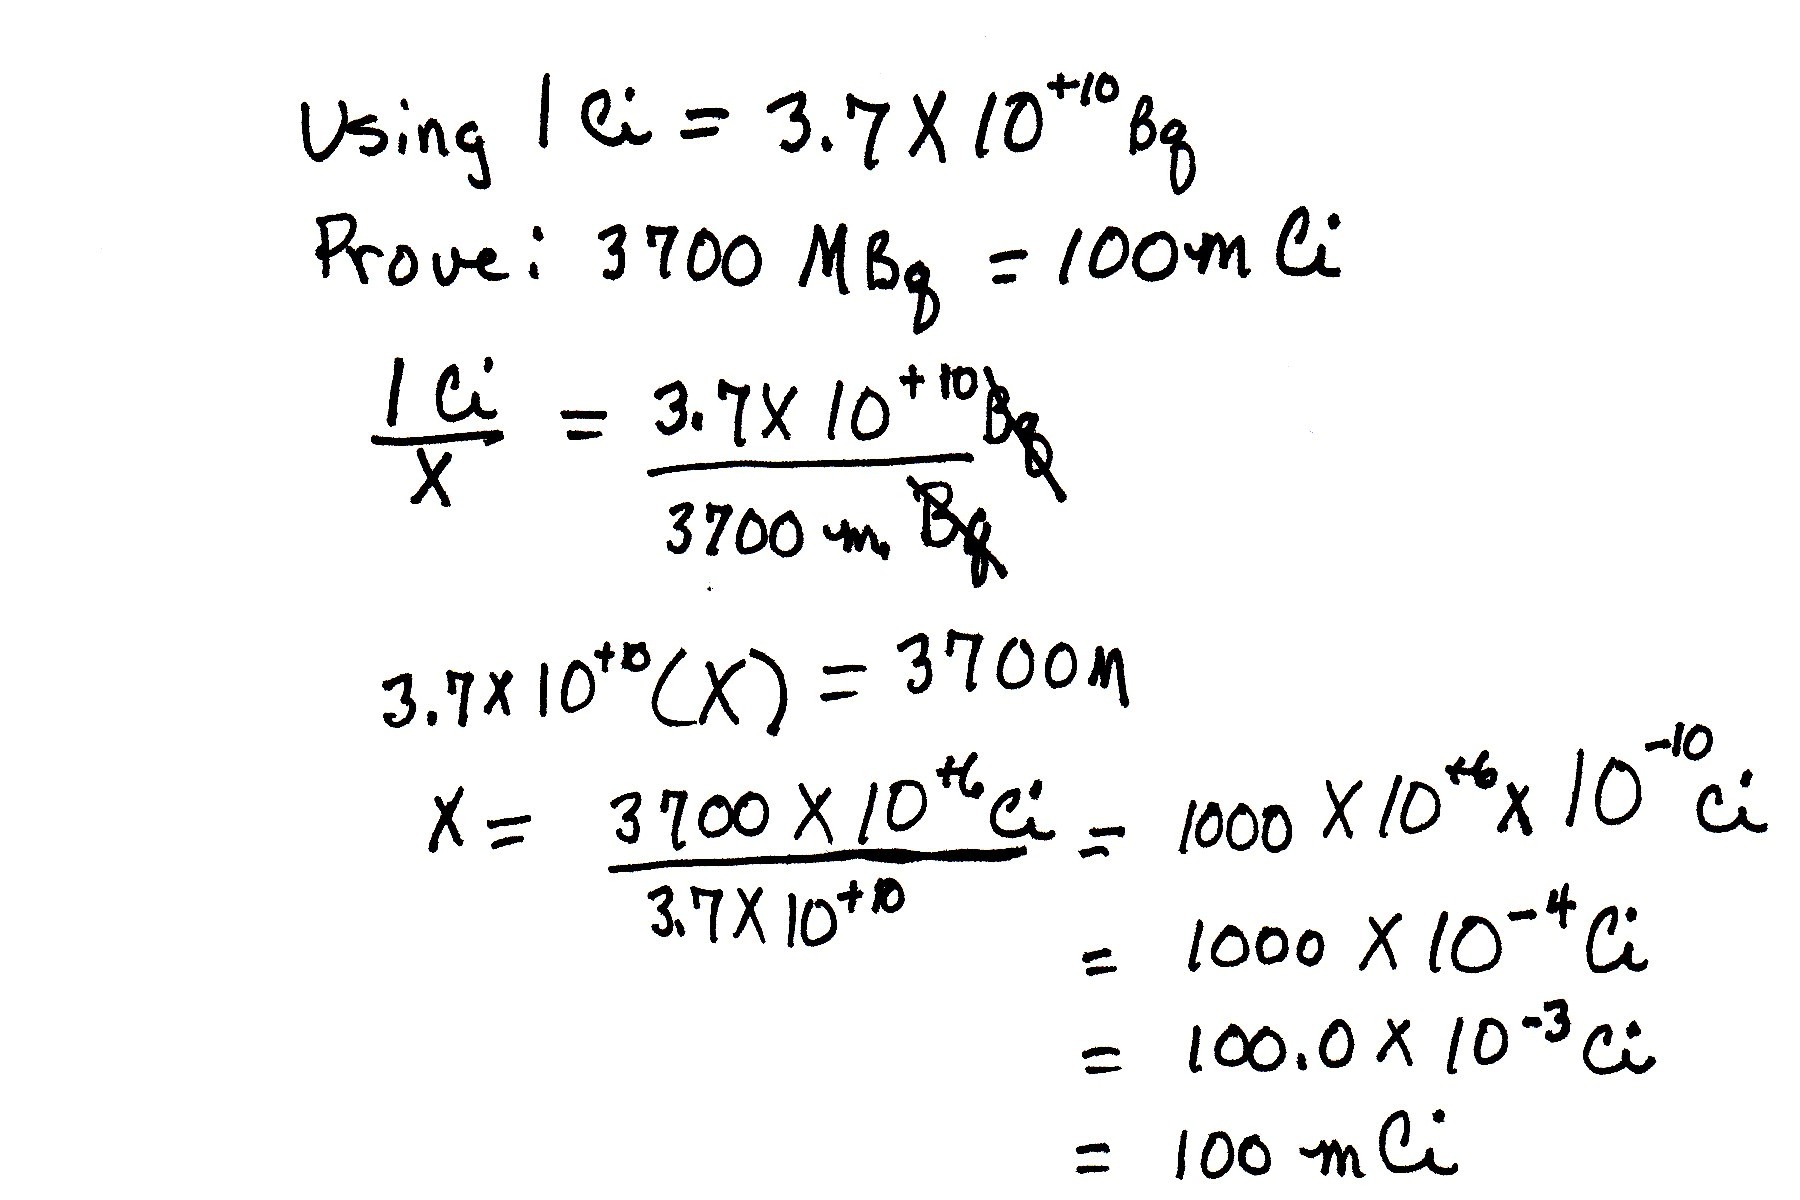 Using 1 Ci = 3.7 X 10^{+10} Bq
Prove: 3700 MBq = 100 mCi
1 Ci / X = 3.7 X 10^{+10} Bq / 3700 m Bq
3.7 X 10^{+10} (X) = 3700 M
X = 3700 X 10^{+6} Ci / 3.7 X 10^{+10} = 1000 X 10^{+6} X 10^{-10} Ci
= 1000 X 10^{-4} Ci
= 100.0 X 10^{-3} Ci
= 100 mCi